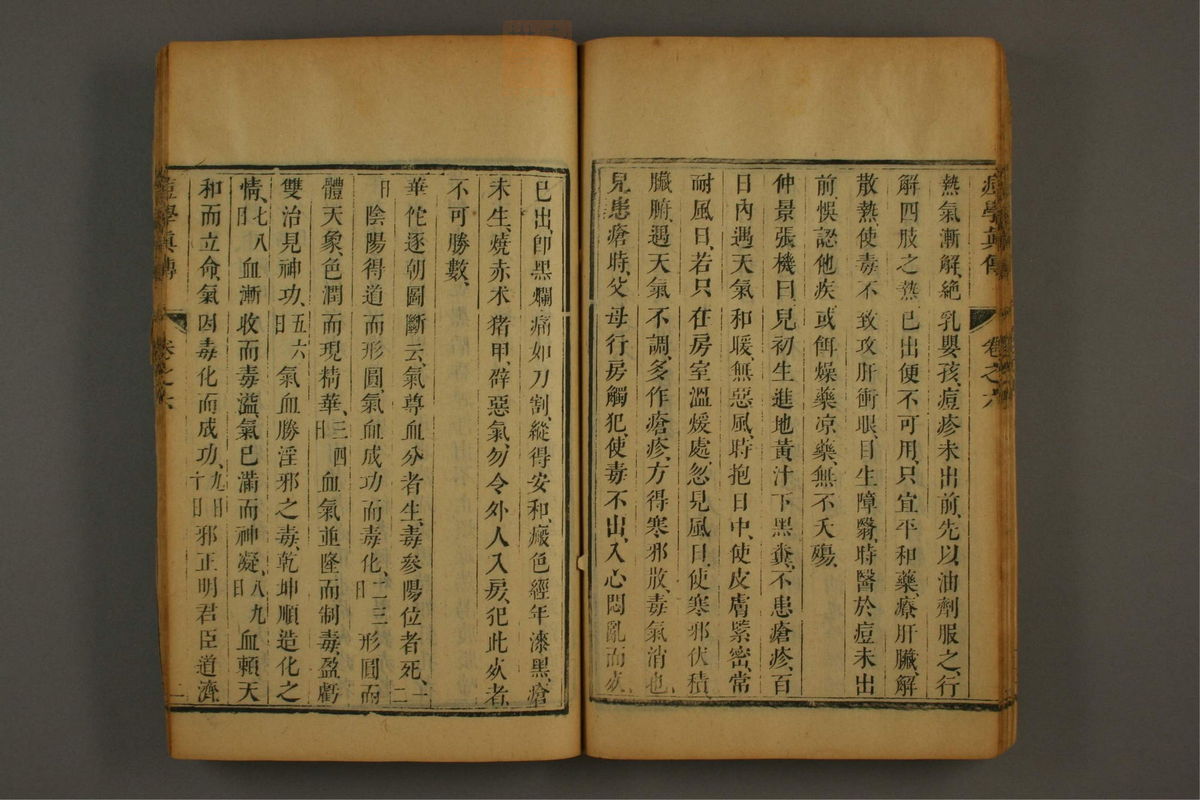 痘學真傳 卷之六
熱氣漸解、絕乳嬰孩、痘疹未出前、先以油劑服之、行
解四肢之熱、已出便不可用、只宜平和藥療肝臟解
散熱使毒不致攻肝衝眼、目生障翳、時醫於痘未出
前、悞認他疾、或餌燥藥凉藥、無不夭殤、
仲景張機曰、兒初生進地黃汁下黑糞、不患瘡疹、百
日內遇天氣和暖、無惡風、時抱日中、使皮膚緊密、常
耐風日、若只在房室溫煖處、忽見風日、使寒邪伏積、
臟腑、遇天氣不調、多作瘡疹、方得寒邪散、毒氣消也、
兒患瘡時、父母行房觸犯、使毒不出、入心悶亂而死、
已出、卽黑爛痛如刀割、縱得安和、瘢色經年漆黑、瘡
未生、燒赤朮猪甲、辟惡氣、勿令外人入房、犯此死者、
不可勝數、
華佗逐朝圖斷云、氣尊血分者生、毒參陽位者死、一二
日陰陽得道而形圓、氣血成功而毒化、二三日形圓而
體天象、色潤而現精華、三四日血氣並隆而制毒、盈虧
雙治見神功、五六日氣血勝淫邪之毒、乾坤順造化之
情、七八日血漸收而毒溢、氣已滿而神凝、八九日血頼天
和而立命、氣因毒化而成功、九日十日邪正明君臣道濟
痘學真傳 卷之六 二